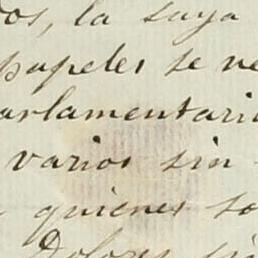 os, la suya
papeles se ve
arlamentari
varios sin
quienes so
Dolores sin